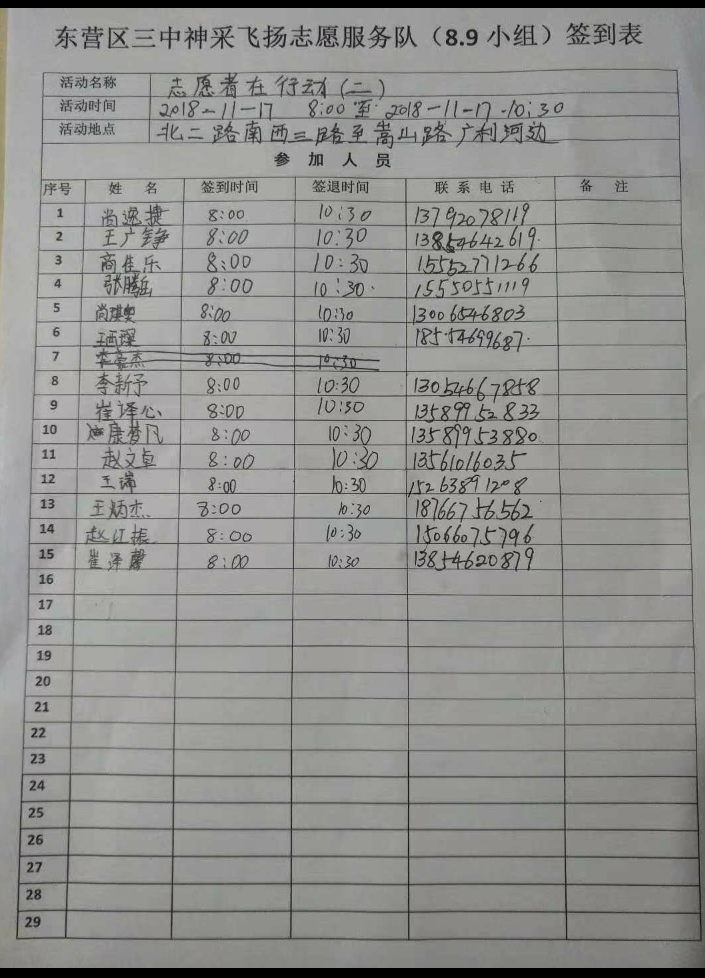 东营区三中神采飞扬志愿服务队（8.9 小组）签到表
活动名称 志愿者在行动(二)
活动时间 2018-11-17 8:00至 2018-11-17 10:30
活动地点 北二路南西三路至嵩山路广利河边
参 加 人 员
序号 姓 名 签到时间 签退时间 联系电话 备 注
1 尚逸捷 8:00 10:30 13792078119
2 王广铮 8:00 10:30 13854642619
3 商佳乐 8:00 10:30 15552771266
4 张腾岳 8:00 10:30 15550551119
5 8:00 10:30 13006546803
6 8:00 10:30 18554699687
7 李豪杰 8:00 10:30
8 李新予 8:00 10:30 13054667858
9 崔译心 8:00 10:30 13589952833
10 康梦凡 8:00 10:30 13589953880
11 赵文卓 8:00 10:30 13561016035
12 王瑞 8:00 10:30 15263891208
13 王炳杰 8:00 10:30 18766756562
14 赵江振 8:00 10:30 15066075796
15 崔泽馨 8:00 10:30 13854620879
16
17
18
19
20
21
22
23
24
25
26
27
28
29